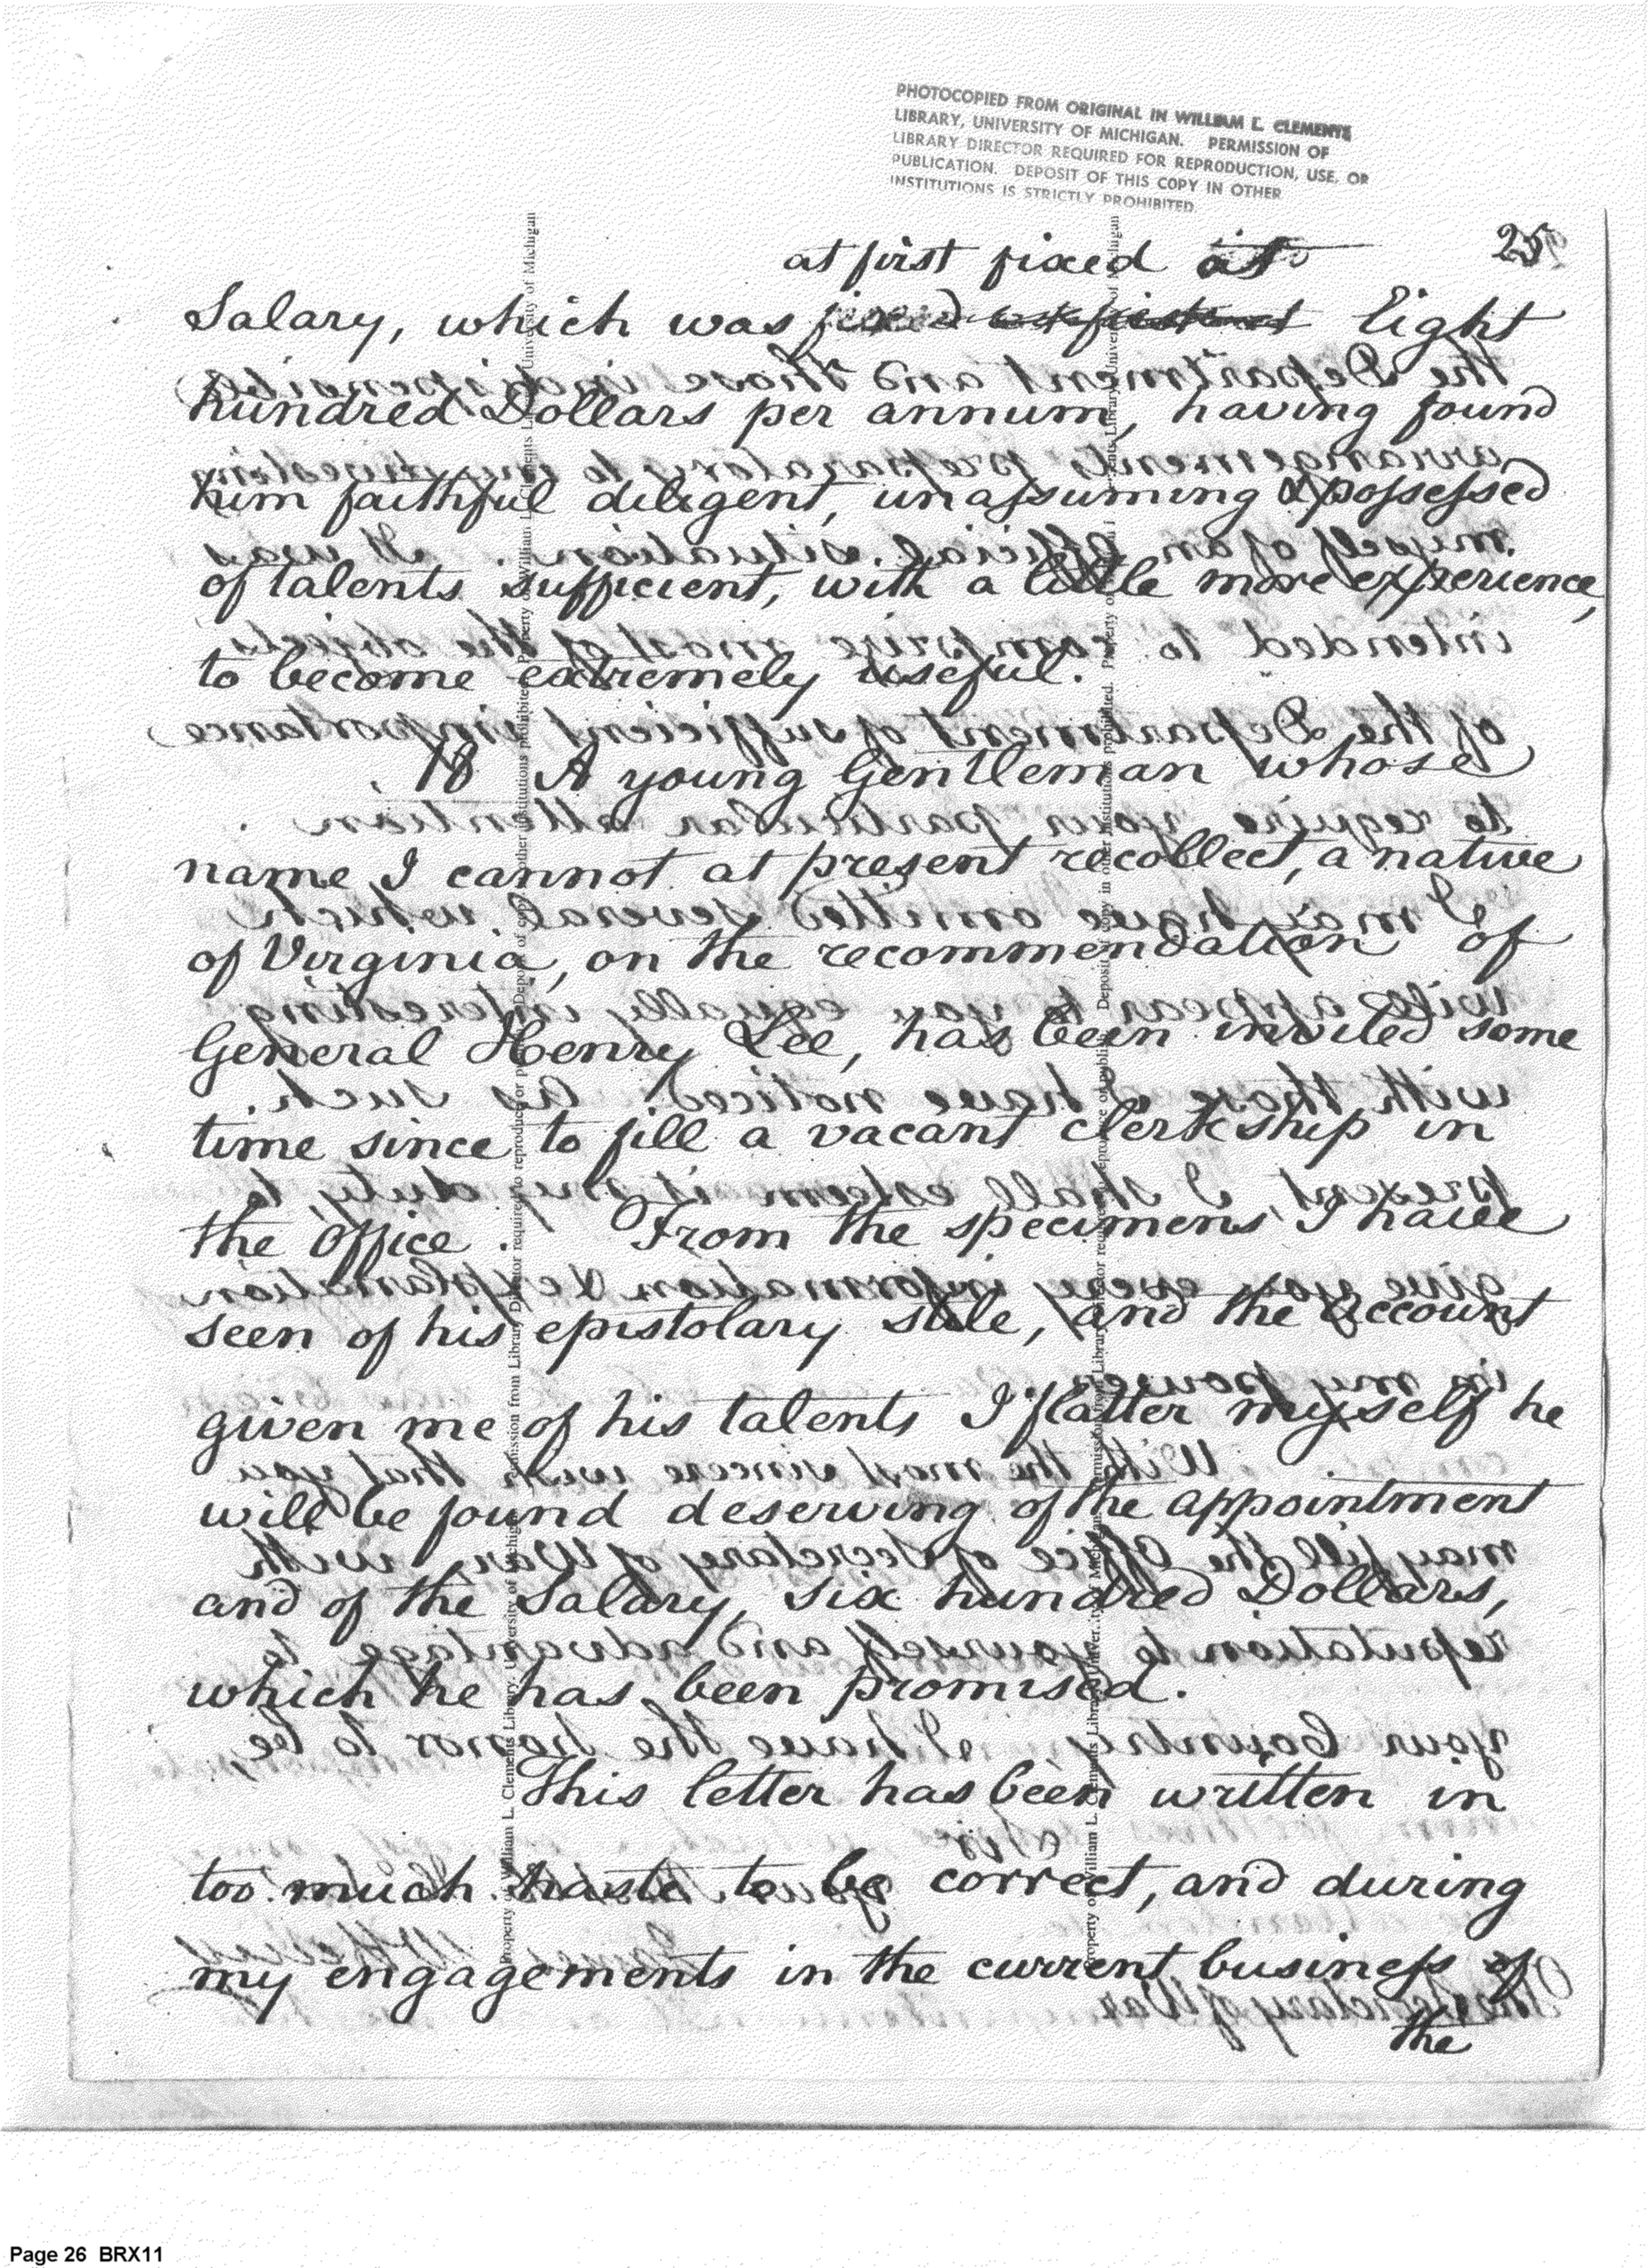 PHOTOCOPIED FROM ORIGINAL IN WILLIAM L. CLEMENTS
LIBRARY, UNIVERSITY OF MICHIGAN. PERMISSION OF
LIBRARY DIRECTOR REQUIRED FOR REPRODUCTION, USE, OR
PUBLICATION. DEPOSIT OF THIS COPY IN OTHER
INSTITUTIONS IS STRICTLY PROHIBITED.
25
at first fixed at
Salary, which was fixed Eight
hundred Dollars per annum, having found
him faithful diligent, unassuming & possessed
of talents sufficient, with a little more experience,
to become extremely useful.
18 A young Gentleman whose
name I cannot at present recollect, a native
of Virginia, on the recommendation of
General Henry Lee, has been invited some
time since to fill a vacant clerkship in
the Office. From the specimens, I have
seen of his epistolary stile, and the account
given me of his talents I flatter myself he
will be found deserving of the appointment
and of the Salary, six hundred Dollars,
which he has been promised.
This letter has been written in
too much haste to be correct, and during
my engagements in the current business of
the
Page 26 BRX11